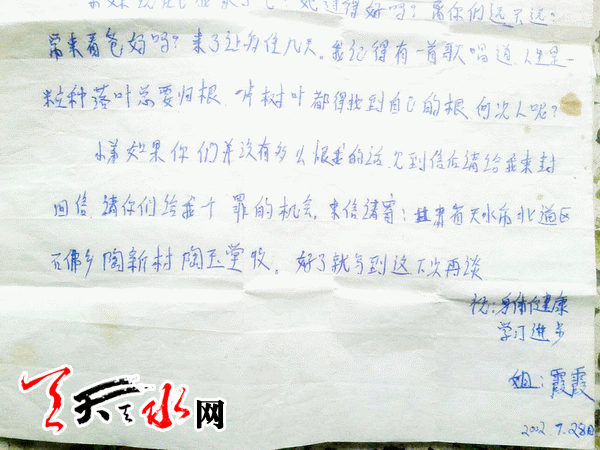 她过得好吗？离你们远不远？
常来看爸妈吗？来了让多住几天。我记得有一首歌唱道，人生是一
粒种落叶总要归根 一片树叶都得找到自己的根 何况人呢？
小弟如果你们并没有多么恨我的话 见到信后请给我来封
回信 请你们给我个 罪的机会，来信请寄：甘肃省天水市北道区
石佛乡陶新村陶玉堂收，好了就写到这下次再谈
祝：身体健康
学习进步
姐：霞霞
2002.7.28日
天天天水网